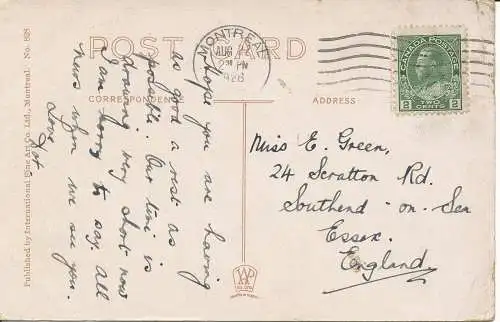 POST CARD
CORRESPONDENCE
ADDRESS
MONTREAL
AUG 12
PM
1926
CANADA POSTAGE
2 TWO CENTS 2
Hope you are having
as good a rest as
possible. Our time is
drawing very short now
I am sorry to say. All
news when we see you.
Love,
Dot
Miss E. Green,
24 Scratton Rd.
Southend-on-Sea
Essex.
England
Published by International Fine Art Co. Ltd., Montreal. No. 828